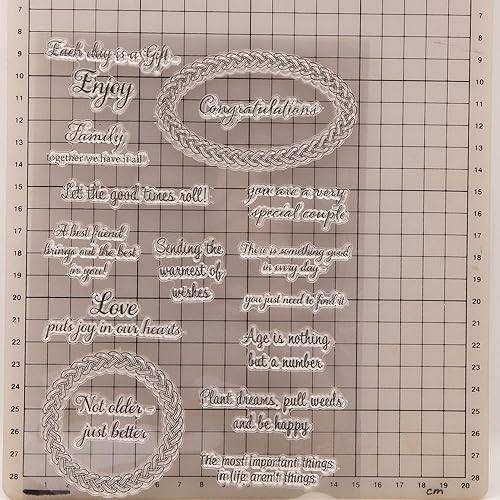 Each day is a Gift
Enjoy
Congratulations
Family
together we have it all
Let the good times roll!
you are a very
special couple
A best friend
brings out the best
in you!
Sending the
warmest of
wishes
There is something good
in every day -
you just need to find it
Love
puts joy in our hearts
Age is nothing
but a number
Not older -
just better
Plant dreams, pull weeds
and be happy
The most important things
in life aren't things
7
8
9
10
11
12
13
14
15
16
17
18
19
20
21
22
23
24
25
26
27
28
7
8
9
10
11
12
13
14
15
16
17
18
19
20
21
22
23
24
25
26
27
28
1 2 3 4 5 6 7 8 9 10 11 12 13 14 cm 18 19 20